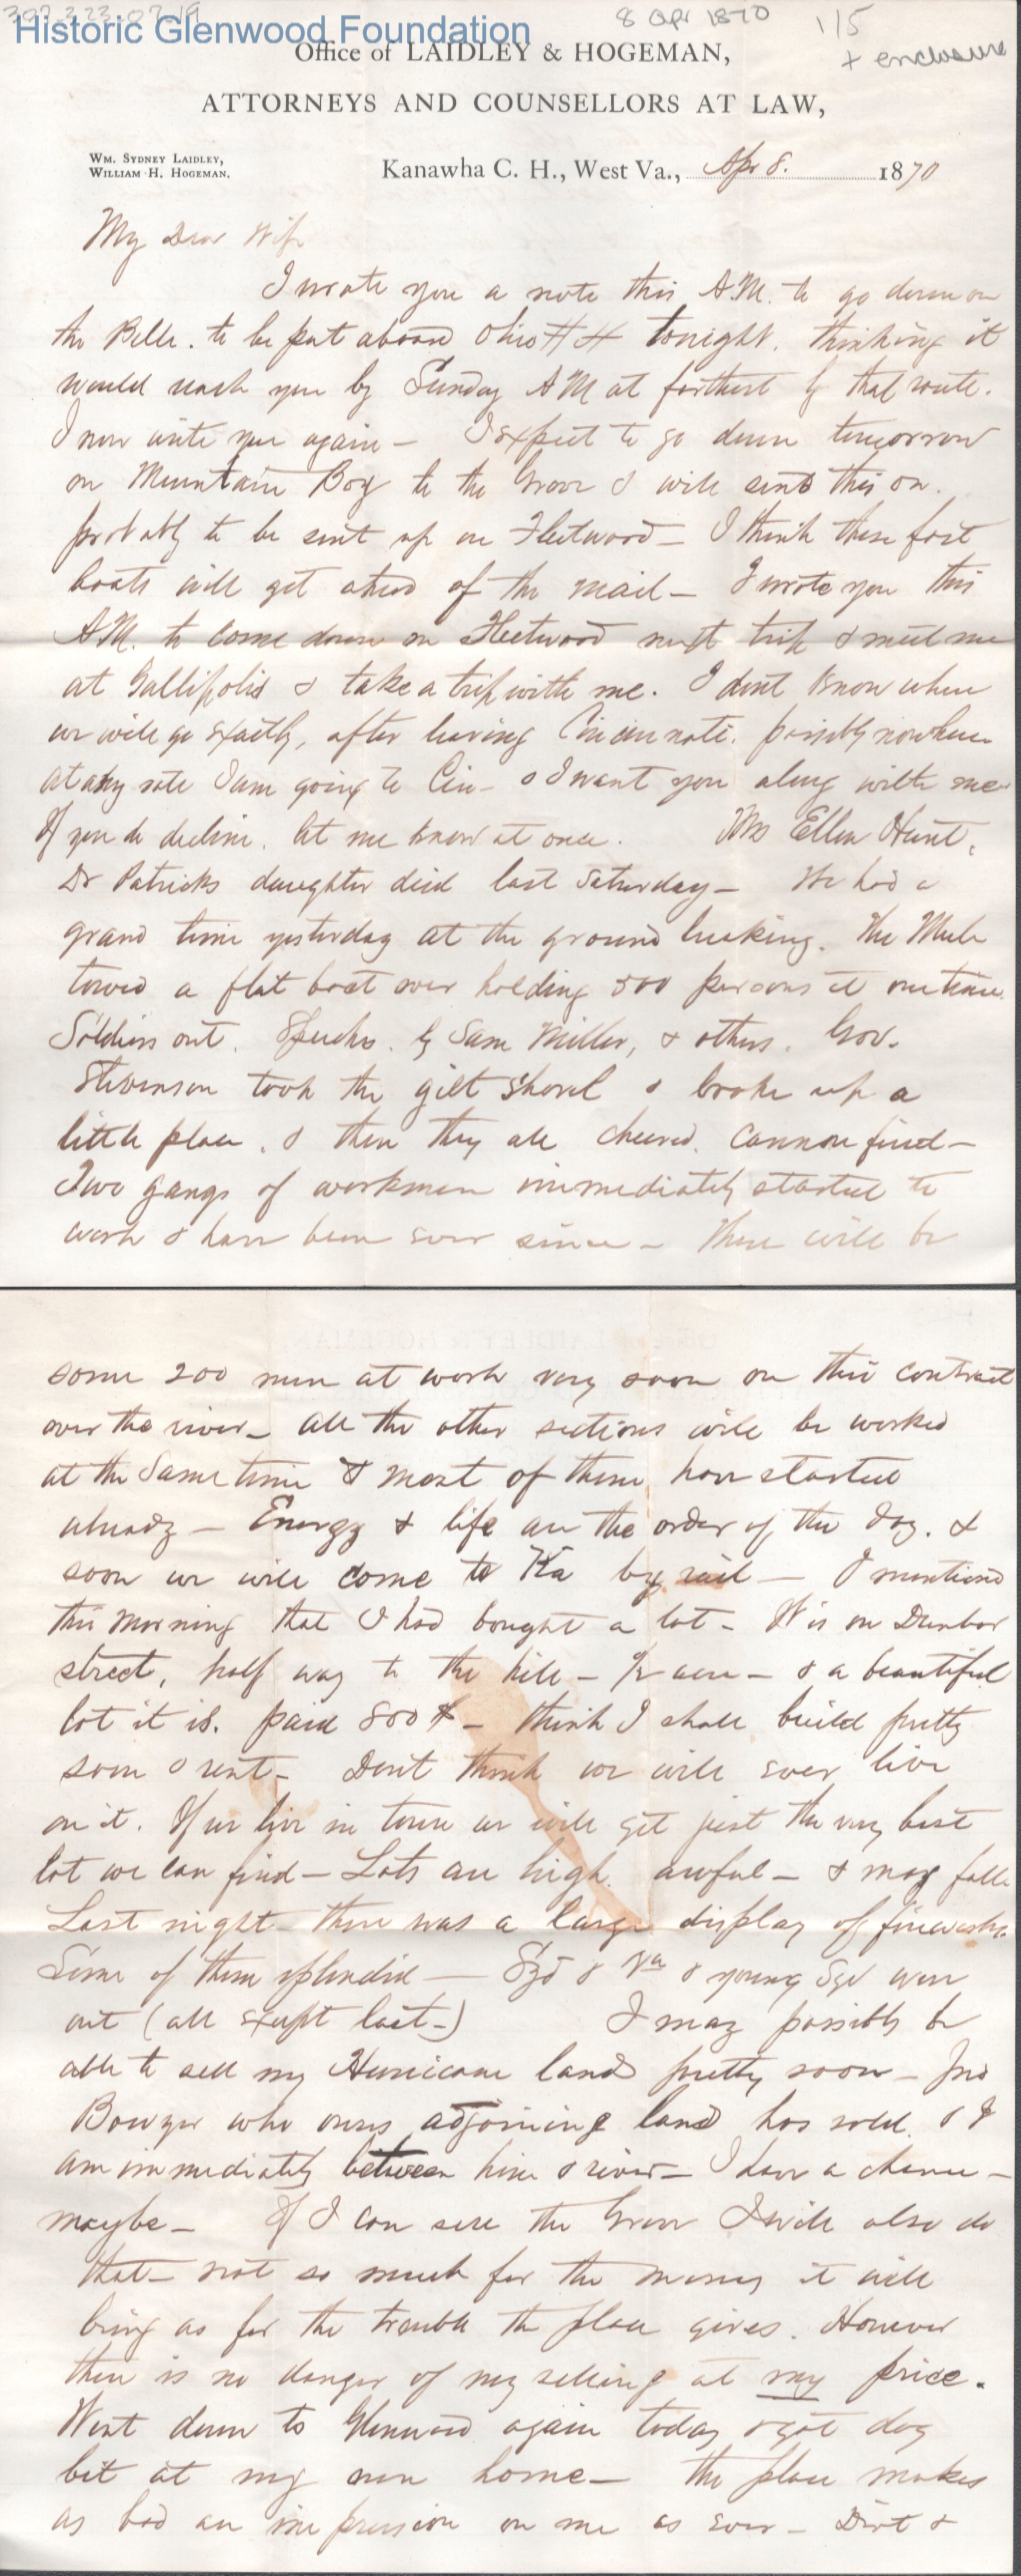 302.223.02.19
8 Apr 1870
1/5
+ enclosure
Historic Glenwood Foundation
Office of LAIDLEY & HOGEMAN,
ATTORNEYS AND COUNSELLORS AT LAW,
Wm. Sydney Laidley,
William H. Hogeman.
Kanawha C. H., West Va., Apr 8. 1870
My Dear Wife
I wrote you a note this A.M. to go down on
the Belle. to be put aboard Ohio tonight. thinking it
would reach you by Sunday AM at farthest by that route.
I now write you again – I expect to go down tomorrow
on Mountain Boy to the Grove & will send this on.
probably to be sent up on Fleetwood – I think these fast
boats will get ahead of the mail – I wrote you this
A.M. to come down on Fleetwood next trip & meet me
at Gallipolis & take a trip with me. I dont know where
we will go exactly, after leaving Cincinnati. possibly nowhere
at any rate I am going to Cin – & I want you along with me
If you do decline. let me know at once. Mrs Ellen Hunt,
Dr Patricks daughter died last Saturday – We had a
grand time yesterday at the ground breaking. The Mule
towed a flat boat over holding 500 persons at one time.
Soldiers out. Speeches. by Sam Miller, & others. Gov.
Stevenson took the gilt shovel & broke up a
little place. & then they all cheered. Cannon fired –
Two gangs of workmen immediately started to
work & have been ever since – There will be
some 200 men at work very soon on this contract
over the river – All the other sections will be worked
at the same time & most of them have started
already – Energy & life are the order of the day. &
soon we will come to Ka by rail – I mentioned
this morning that I had bought a lot – It is on Dunbar
street, half way to the hill – ½ acre – & a beautiful
lot it is. paid 800$ – think I shall build pretty
soon & rent – Dont think we will ever live
on it. If we live in town we will get just the very best
lot we can find – Lots are high. awful – & may fall.
Last night there was a large display of fireworks.
Some of them splendid — Syd & Va & young Syd were
out (all except last –) I may possibly be
able to sell my Hurricane land pretty soon – Jno
Bowyer who owns adjoining land has sold. & I
am immediately between him & river – I have a chance –
maybe – If I can sell the Grove I will also do
that – not so much for the money it will
bring as for the trouble the place gives. However
there is no danger of my selling at my price.
Went down to Glenwood again today & got dog
bit at my own home – The place makes
as bad an impression on me as ever – Dirt &